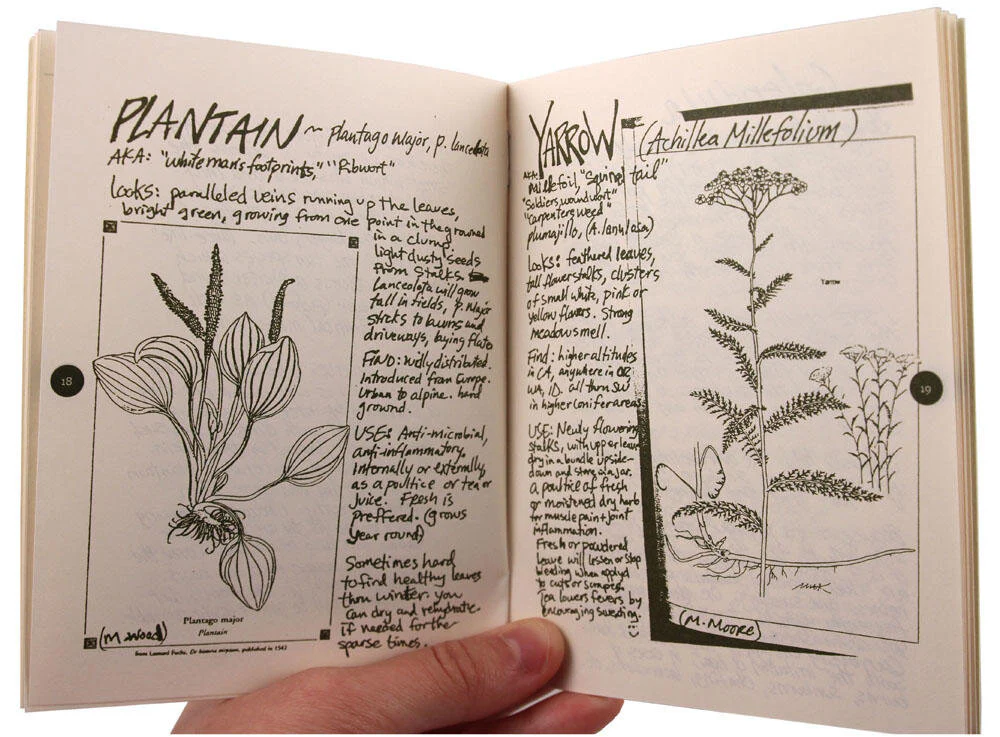 PLANTAIN ~ Plantago Major, P. lanceolata
AKA: "whiteman's footprints," "Ribwort"
Looks: paralleled veins running up the leaves,
bright green, growing from one point in the ground
in a clump.
light dusty seeds
from stalks.
Lanceolota will grow
tall in fields, P. Major
sticks to lawns and
driveways, laying flater
FIND: widly distributed.
Introduced from Europe.
Urban to alpine. hard
ground.
USE: Anti-microbial,
anti-inflammatory.
Internally or externally,
as a poultice or tea or
juice. Fresh is
preffered. (grows
year round)
Sometimes hard
to find healthy leaves
thru winter. you
can dry and rehydrate
if needed for the
sparse times.
18
Plantago major
Plantain
(M. Wood)
from Leonard Fuchs, De historia stirpium, published in 1542
YARROW (Achillea Millefolium)
AKA:
Millefoil, "Squirrel tail"
"Soldiers woundwort"
"Carpenters weed"
plumajillo, (A. lanulosa)
Looks: feathered leaves,
tall flower stalks, clusters
of small white, pink or
yellow flowers. Strong
meadow smell.
Find: higher altitudes
in CA, anywhere in OR
WA, ID. all thru SW
in higher conifer areas
USE: Newly flowering
stalks, with upper leaves
dry in a bundle upside-
down and store in a jar.
a poultice of fresh
or moistened dry herb
for muscle pain + joint
inflammation.
Fresh or powdered
leave will lessen or stop
bleeding when applied
to cuts or scrapes.
Tea lowers fevers by
encouraging sweating.
Yarrow
19
(M. MOORE)